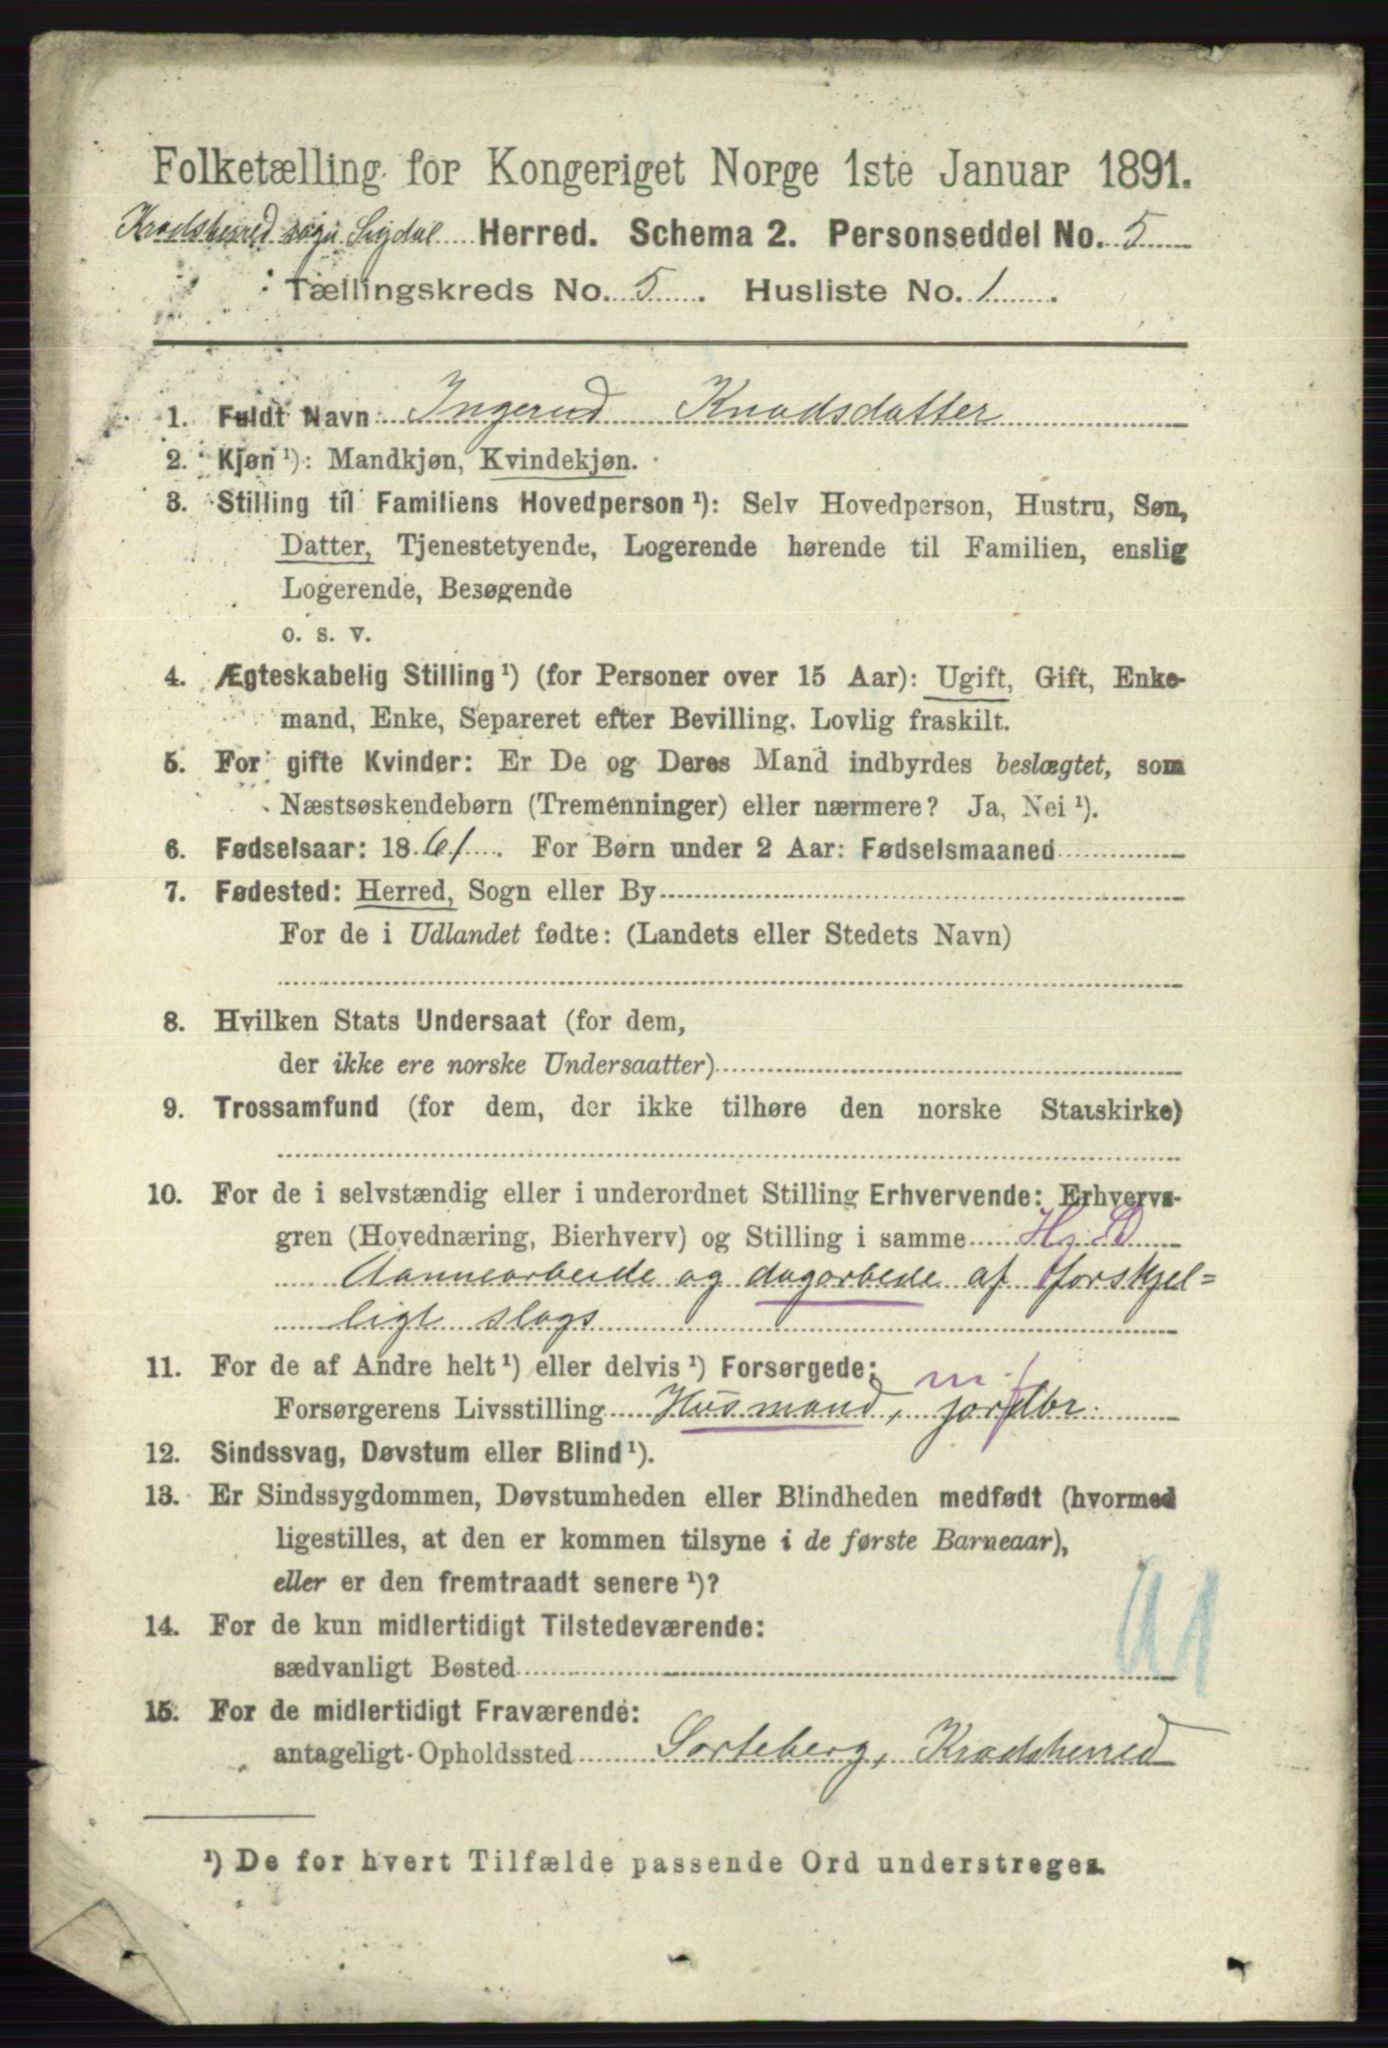 Folketælling for Kongeriget Norge 1ste Januar 1891.
Kradsherred sogn Sigdal Herred. Schema 2. Personseddel No. 5
Tællingskreds No. 5. Husliste No. 1.
1. Fuldt Navn Ingerid Knudsdatter
2. Kjøn ¹): Mandkjøn, Kvindekjøn.
3. Stilling til Familiens Hovedperson ¹): Selv Hovedperson, Hustru, Søn,
Datter, Tjenestetyende, Logerende hørende til Familien, enslig
Logerende, Besøgende
o. s. v.
4. Ægteskabelig Stilling ¹) (for Personer over 15 Aar): Ugift, Gift, Enke-
mand, Enke, Separeret efter Bevilling. Lovlig fraskilt.
5. For gifte Kvinder: Er De og Deres Mand indbyrdes beslægtet, som
Næstsøskendebørn (Tremenninger) eller nærmere? Ja, Nei ¹).
6. Fødselsaar: 1861. For Børn under 2 Aar: Fødselsmaaned
7. Fødested: Herred, Sogn eller By
For de i Udlandet fødte: (Landets eller Stedets Navn)
8. Hvilken Stats Undersaat (for dem,
der ikke ere norske Undersaatter)
9. Trossamfund (for dem, der ikke tilhøre den norske Statskirke)
10. For de i selvstændig eller i underordnet Stilling Erhvervende: Erhvervs-
gren (Hovednæring, Bierhverv) og Stilling i samme
Aannearbeide og dagarbede af forskjel=
ligt slags
11. For de af Andre helt ¹) eller delvis ¹) Forsørgede:
Forsørgerens Livsstilling Husmand, m. jordbr.
12. Sindssvag, Døvstum eller Blind ¹).
13. Er Sindssygdommen, Døvstumheden eller Blindheden medfødt (hvormed
ligestilles, at den er kommen tilsyne i de første Barneaar),
eller er den fremtraadt senere ¹)?
14. For de kun midlertidigt Tilstedeværende:
sædvanligt Bosted
15. For de midlertidigt Fraværende:
antageligt Opholdssted Sorteberg, Kradsherred
¹) De for hvert Tilfælde passende Ord understreges.